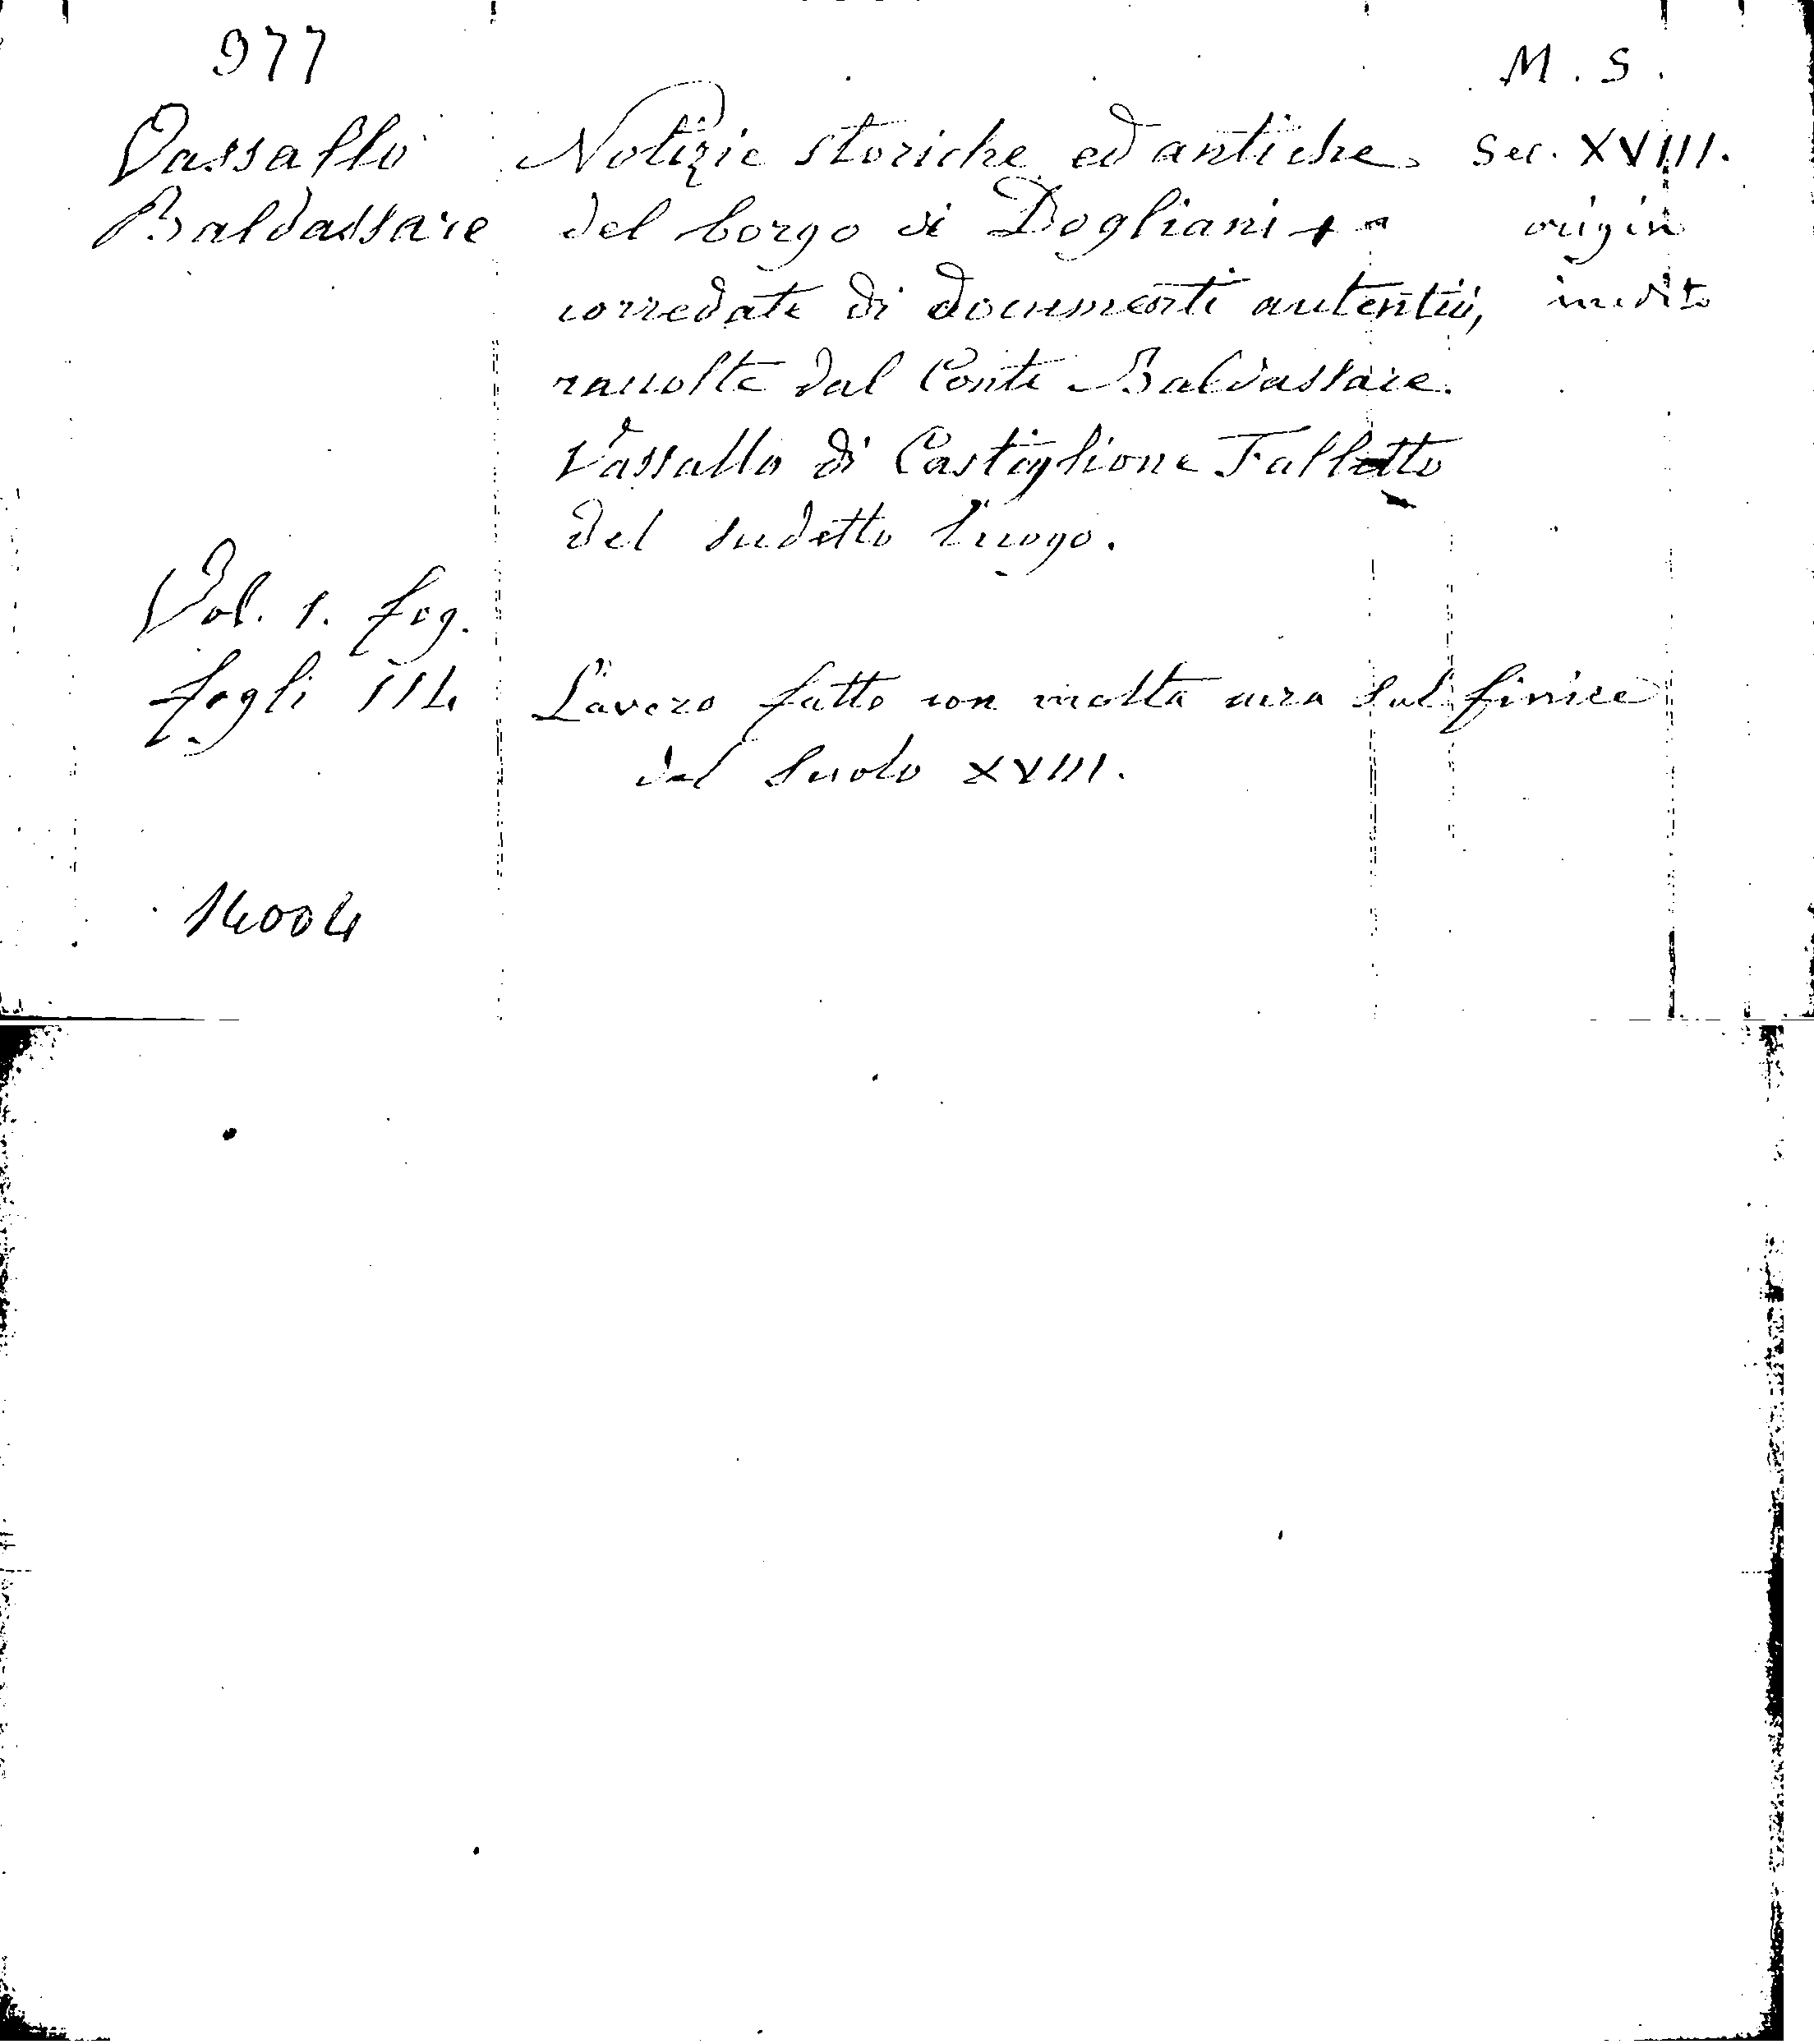 977
M. S.
Vassallo Notizie storiche ed antiche Sec. XVIII.
Baldassare del borgo di Dogliani + origin
corredate di documenti autentici, inedito
raccolte dal Conte Baldassare
Vassallo di Castiglione Falletto
del sudetto luogo.
Vol. 1. fog.
fogli 114 Lavoro fatto con molta cura sul finire
del Secolo XVIII.
14004